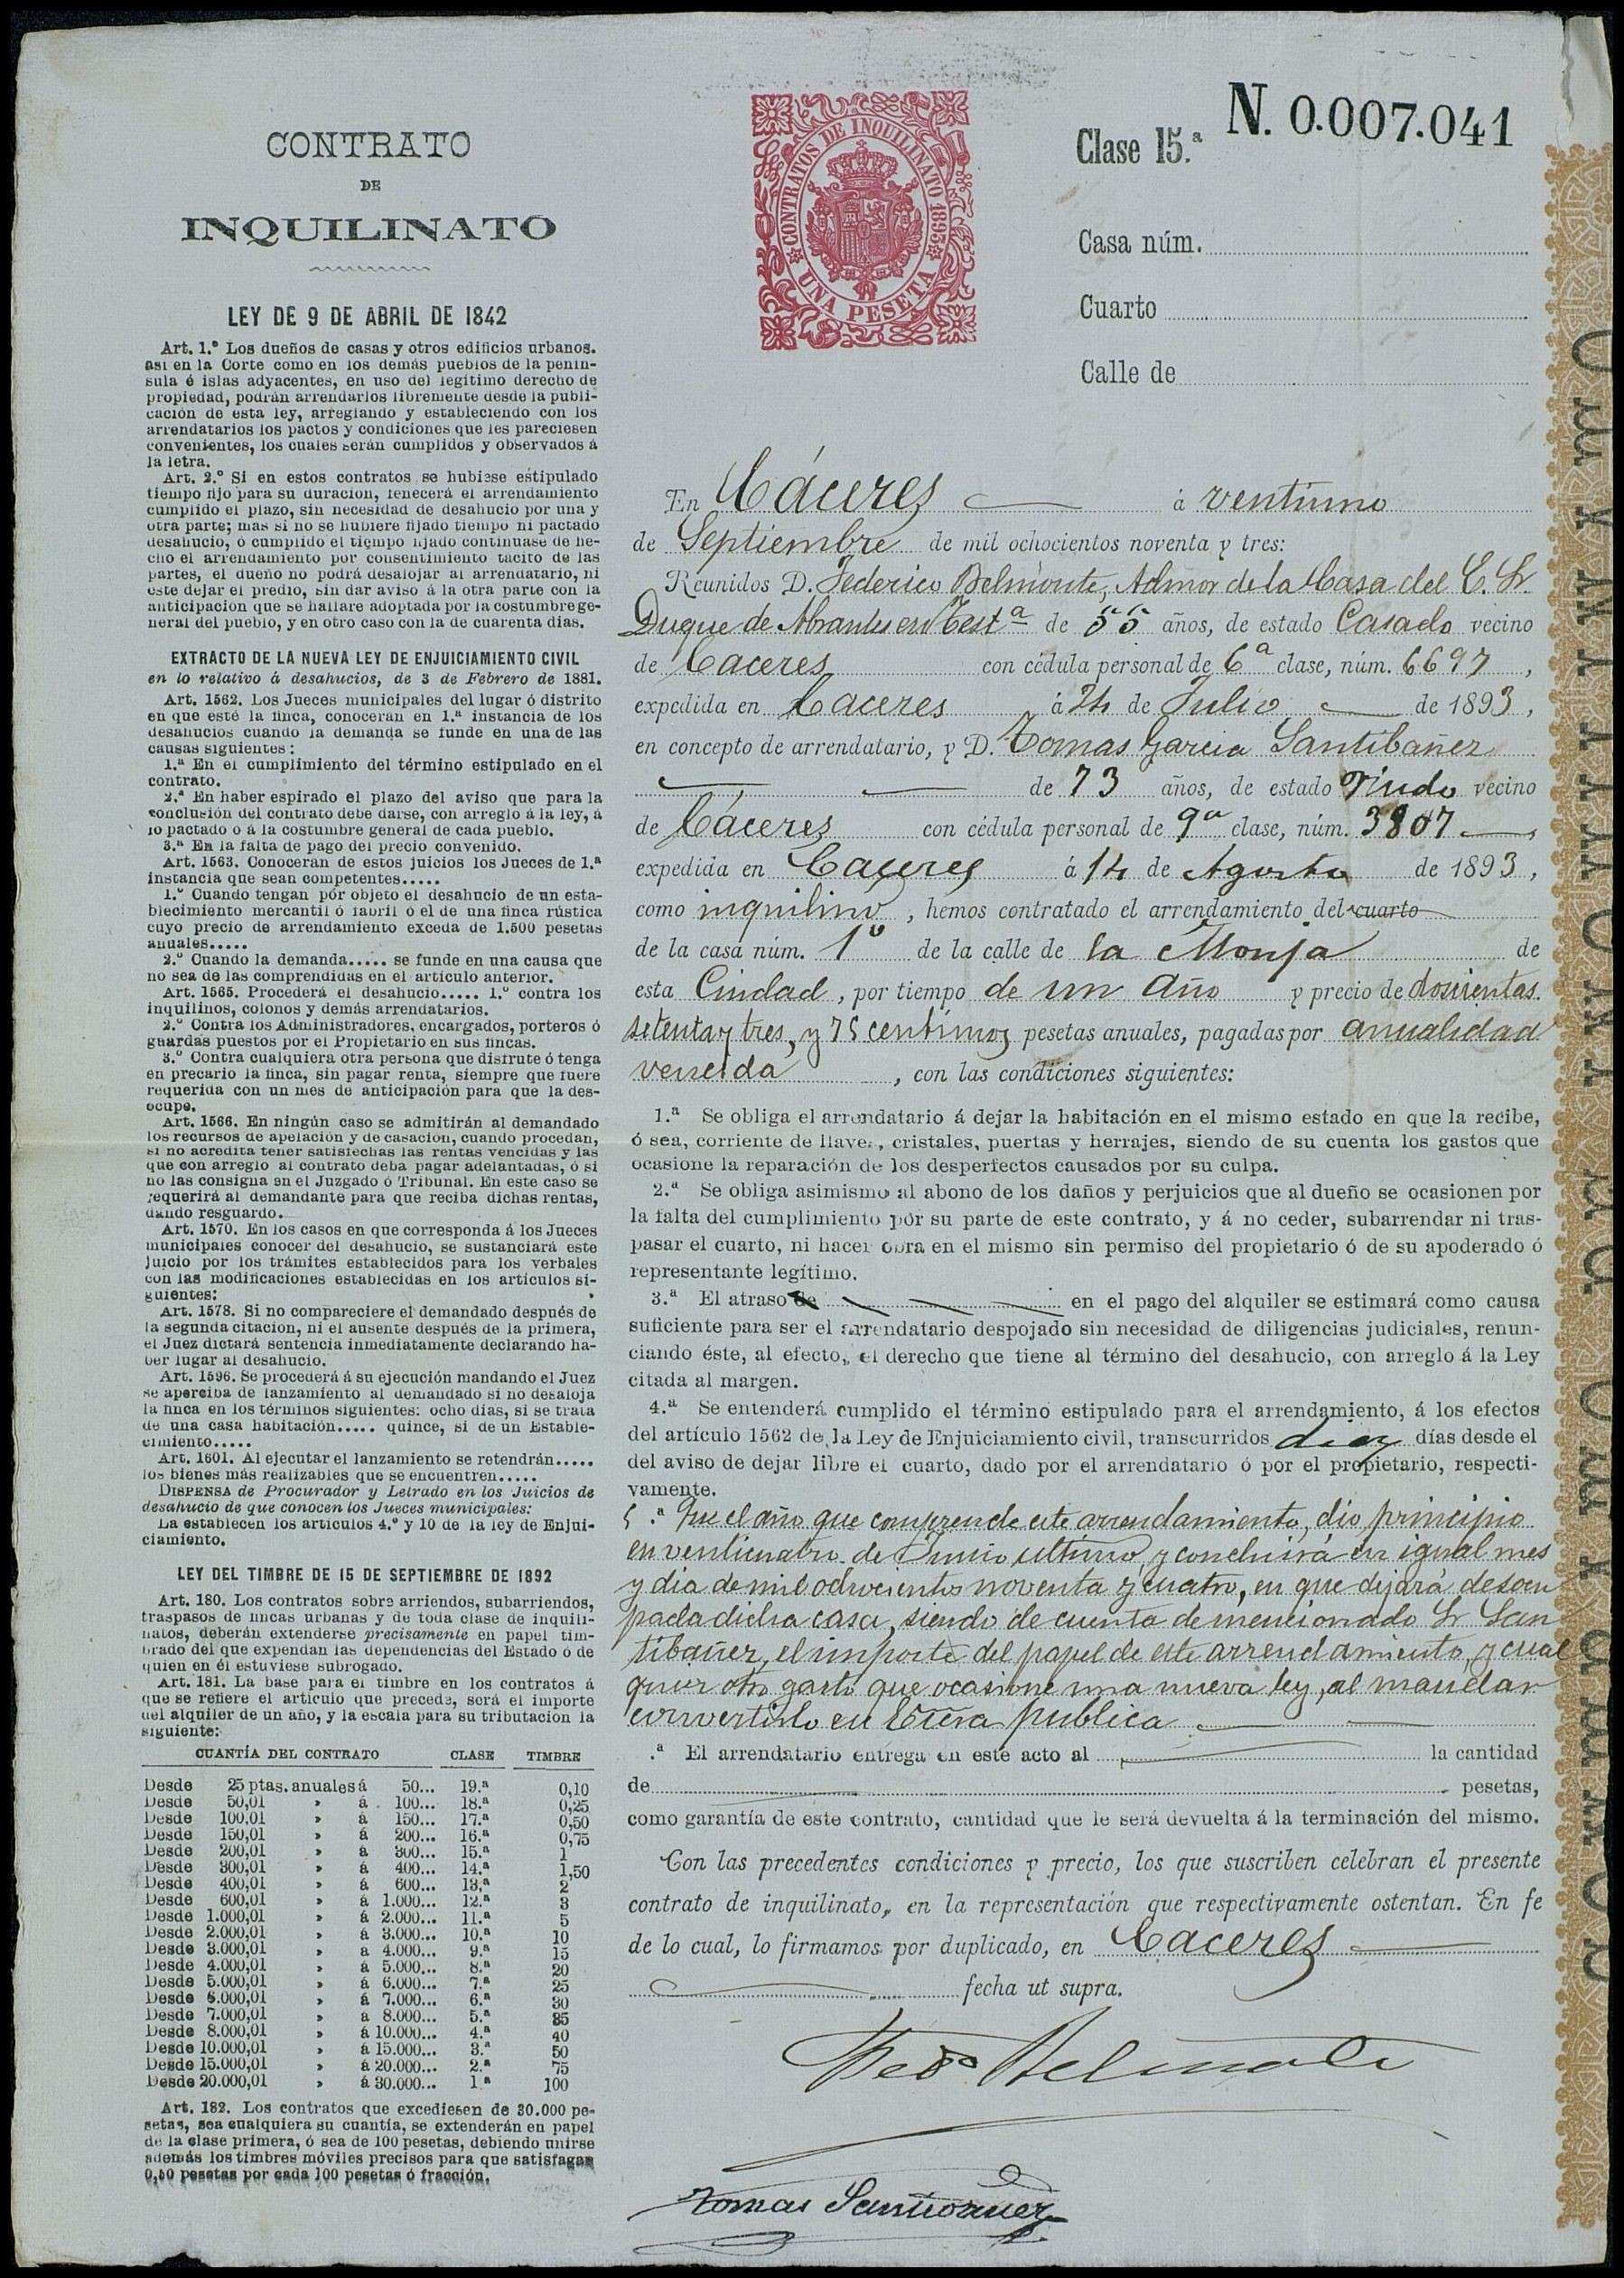 CONTRATO
DE
INQUILINATO
LEY DE 9 DE ABRIL DE 1842
Art. 1.º Los dueños de casas y otros edificios urbanos.
asi en la Corte como en los demás pueblos de la penín-
sula é islas adyacentes, en uso del legítimo derecho de
propiedad, podrán arrendarlos libremente desde la publi-
cación de esta ley, arreglando y estableciendo con los
arrendatarios los pactos y condiciones que les pareciesen
convenientes, los cuales serán cumplidos y observados á
la letra.
Art. 2.º Si en estos contratos se hubiese estipulado
tiempo fijo para su duración, fenecerá el arrendamiento
cumplido el plazo, sin necesidad de desahucio por una y
otra parte; mas si no se hubiere fijado tiempo ni pactado
desahucio, ó cumplido el tiempo fijado continuase de he-
cho el arrendamiento por consentimiento tácito de las
partes, el dueño no podrá desalojar al arrendatario, ni
éste dejar el predio, sin dar aviso á la otra parte con la
anticipación que se hallare adoptada por la costumbre ge-
neral del pueblo, y en otro caso con la de cuarenta días.
EXTRACTO DE LA NUEVA LEY DE ENJUICIAMIENTO CIVIL
en lo relativo á desahucios, de 3 de Febrero de 1881.
Art. 1562. Los Jueces municipales del lugar ó distrito
en que esté la finca, conocerán en 1.ª instancia de los
desahucios cuando la demanda se funde en una de las
causas siguientes:
1.ª En el cumplimiento del término estipulado en el
contrato.
2.ª En haber espirado el plazo del aviso que para la
conclusión del contrato debe darse, con arreglo á la ley, á
lo pactado o á la costumbre general de cada pueblo.
3.ª En la falta de pago del precio convenido.
Art. 1563. Conocerán de estos juicios los Jueces de 1.ª
instancia que sean competentes.....
1.º Cuando tengan por objeto el desahucio de un esta-
blecimiento mercantil ó fabril ó el de una finca rústica
cuyo precio de arrendamiento exceda de 1.500 pesetas
anuales.....
2.º Cuando la demanda..... se funde en una causa que
no sea de las comprendidas en el artículo anterior.
Art. 1565. Procederá el desahucio..... 1.º contra los
inquilinos, colonos y demás arrendatarios.
2.º Contra los Administradores, encargados, porteros ó
guardas puestos por el Propietario en sus fincas.
3.º Contra cualquiera otra persona que disfrute ó tenga
en precario la finca, sin pagar renta, siempre que fuere
requerida con un mes de anticipación para que la des-
ocupe.
Art. 1566. En ningún caso se admitirán al demandado
los recursos de apelación y de casación, cuando procedan,
si no acredita tener satisfechas las rentas vencidas y las
que con arreglo al contrato deba pagar adelantadas, ó si
no las consigna en el Juzgado ó Tribunal. En este caso se
requerirá al demandante para que reciba dichas rentas,
dando resguardo.
Art. 1570. En los casos en que corresponda á los Jueces
municipales conocer del desahucio, se sustanciará este
juicio por los trámites establecidos para los verbales
con las modificaciones establecidas en los artículos si-
guientes:
Art. 1578. Si no compareciere el demandado después de
la segunda citación, ni el ausente después de la primera,
el Juez dictará sentencia inmediatamente declarando ha-
ber lugar al desahucio.
Art. 1596. Se procederá á su ejecución mandando el Juez
se aperciba de lanzamiento al demandado si no desaloja
la finca en los términos siguientes: ocho días, si se trata
de una casa habitación..... quince, si de un Estable-
cimiento.....
Art. 1601. Al ejecutar el lanzamiento se retendrán.....
los bienes más realizables que se encuentren.....
DISPENSA de Procurador y Letrado en los Juicios de
desahucio de que conocen los Jueces municipales:
La establecen los artículos 4.º y 10 de la ley de Enjui-
ciamiento.
LEY DEL TIMBRE DE 15 DE SEPTIEMBRE DE 1892
Art. 180. Los contratos sobre arriendos, subarriendos,
traspasos de fincas urbanas y de toda clase de inquili-
natos, deberán extenderse precisamente en papel tim-
brado del que expendan las dependencias del Estado ó de
quien en él estuviese subrogado.
Art. 181. La base para el timbre en los contratos á
que se refiere el artículo que precede, será el importe
del alquiler de un año, y la escala para su tributación la
siguiente:
CUANTÍA DEL CONTRATO CLASE TIMBRE
Desde 25 ptas. anuales á 50... 19.ª 0,10
Desde 50,01 » á 100... 18.ª 0,25
Desde 100,01 » á 150... 17.ª 0,50
Desde 150,01 » á 200... 16.ª 0,75
Desde 200,01 » á 300... 15.ª 1
Desde 300,01 » á 400... 14.ª 1,50
Desde 400,01 » á 600... 13.ª 2
Desde 600,01 » á 1.000... 12.ª 3
Desde 1.000,01 » á 2.000... 11.ª 5
Desde 2.000,01 » á 3.000... 10.ª 10
Desde 3.000,01 » á 4.000... 9.ª 15
Desde 4.000,01 » á 5.000... 8.ª 20
Desde 5.000,01 » á 6.000... 7.ª 25
Desde 6.000,01 » á 7.000... 6.ª 30
Desde 7.000,01 » á 8.000... 5.ª 35
Desde 8.000,01 » á 10.000... 4.ª 40
Desde 10.000,01 » á 15.000... 3.ª 50
Desde 15.000,01 » á 20.000... 2.ª 75
Desde 20.000,01 » á 30.000... 1.ª 100
Art. 182. Los contratos que excediesen de 30.000 pe-
setas, sea cualquiera su cuantía, se extenderán en papel
de la clase primera, ó sea de 100 pesetas, debiendo unirse
además los timbres móviles precisos para que satisfagan
0,50 pesetas por cada 100 pesetas ó fracción.
CONTRATOS DE INQUILINATO 1893
UNA PESETA
Clase 15.ª N. 0.007.041
Casa núm.
Cuarto
Calle de
En Cáceres á ventiuno
de Septiembre de mil ochocientos noventa y tres:
Reunidos D. Federico Belmonte, Admor de la Casa del E. Sr.
Duque de Abrantes en Testª de 55 años, de estado Casado vecino
de Caceres con cédula personal de 6ª clase, núm. 6697,
expedida en Caceres á 24 de Julio de 1893,
en concepto de arrendatario, y D. Tomas Garcia Santibañez
de 73 años, de estado Viudo vecino
de Cáceres con cédula personal de 9ª clase, núm. 3807,
expedida en Caceres á 14 de Agosto de 1893,
como inquilino, hemos contratado el arrendamiento del cuarto
de la casa núm. 1º de la calle de la Monja de
esta Ciudad, por tiempo de un año y precio de doscientas
setenta y tres, y 75 centimos pesetas anuales, pagadas por anualidad
vencida, con las condiciones siguientes:
1.ª Se obliga el arrendatario á dejar la habitación en el mismo estado en que la recibe,
ó sea, corriente de llaves, cristales, puertas y herrajes, siendo de su cuenta los gastos que
ocasione la reparación de los desperfectos causados por su culpa.
2.ª Se obliga asimismo al abono de los daños y perjuicios que al dueño se ocasionen por
la falta del cumplimiento por su parte de este contrato, y á no ceder, subarrendar ni tras-
pasar el cuarto, ni hacer obra en el mismo sin permiso del propietario ó de su apoderado ó
representante legítimo.
3.ª El atraso de en el pago del alquiler se estimará como causa
suficiente para ser el arrendatario despojado sin necesidad de diligencias judiciales, renun-
ciando éste, al efecto, el derecho que tiene al término del desahucio, con arreglo á la Ley
citada al margen.
4.ª Se entenderá cumplido el término estipulado para el arrendamiento, á los efectos
del artículo 1562 de la Ley de Enjuiciamiento civil, transcurridos diez días desde el
del aviso de dejar libre el cuarto, dado por el arrendatario ó por el propietario, respecti-
vamente.
5.ª Que el año que comprende este arrendamiento, dio principio
en venticuatro de Junio ultimo, y concluirá en igual mes
y dia de mil ochocientos noventa y cuatro, en que dejará desocu
pada dicha casa, siendo de cuenta de mencionado Sr San
tibañez, el importe del papel de este arrendamiento, y cual
quier otro gasto que ocasione una nueva ley, al mandar
convertirlo en Ecura publica
.ª El arrendatario entrega en este acto al la cantidad
de pesetas,
como garantía de este contrato, cantidad que le será devuelta á la terminación del mismo.
Con las precedentes condiciones y precio, los que suscriben celebran el presente
contrato de inquilinato, en la representación que respectivamente ostentan. En fe
de lo cual, lo firmamos por duplicado, en Caceres
fecha ut supra.
Fedº Belmonte
Tomas Santibañez